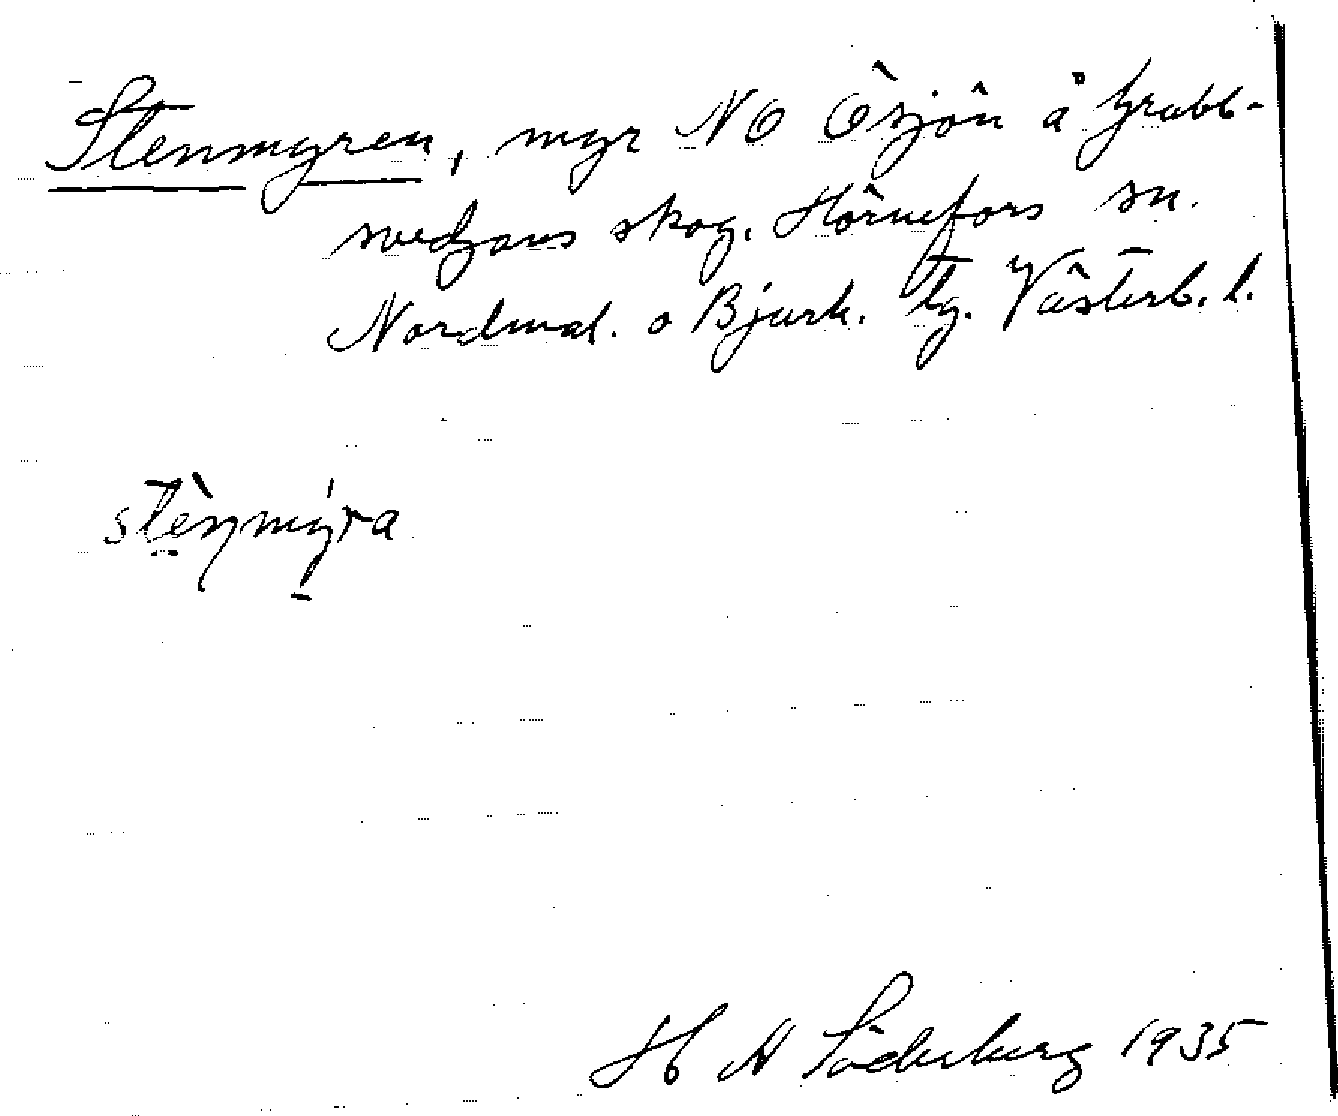 Stenmyren, myr NO Ösjön å Grubb-
svedjans skog. Hörnefors sn.
Nordmal. o Bjurh. tg. Västerb. l.
stènmýra
H A Söderberg 1935